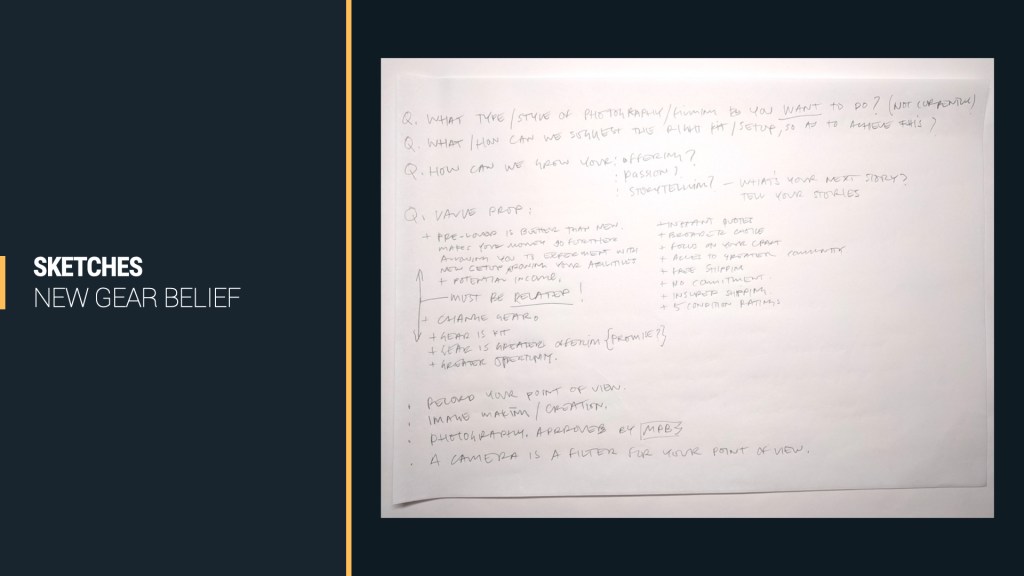 SKETCHES
NEW GEAR BELIEF
Q. WHAT TYPE/STYLE OF PHOTOGRAPHY/FILMING DO YOU WANT TO DO? (NOT CURRENTLY)
Q. WHAT/HOW CAN WE SUGGEST THE RIGHT KIT/SETUP, SO AS TO ACHIEVE THIS?
Q. HOW CAN WE GROW YOUR: OFFERING?
: PASSION?
: STORYTELLING? – WHAT'S YOUR NEXT STORY?
TELL YOUR STORIES
Q. VALUE PROP:
+ PRE-LOVED IS BETTER THAN NEW.
MAKES YOUR MONEY GO FURTHER
ALLOWING YOU TO EXPERIMENT WITH
NEW SETUP GROWING YOUR ABILITIES
+ POTENTIAL INCOME.
MUST BE RELATED!
+ CHANGE GEAR.
+ GEAR IS KIT
+ GEAR IS GREATER OFFERING {PROMISE?}
+ GREATER OPPORTUNITY.
+ INSTANT QUOTES
+ BROADER CHOICE
+ FOCUS ON YOUR CRAFT
+ ACCESS TO GREATER COMMUNITY
+ FREE SHIPPING
+ NO COMMITMENT
+ INSURED SHIPPING
+ 5 CONDITION RATINGS
• RECORD YOUR POINT OF VIEW.
• IMAGE MAKING/CREATION.
• PHOTOGRAPHY. APPROVED BY [MPB}
• A CAMERA IS A FILTER FOR YOUR POINT OF VIEW.